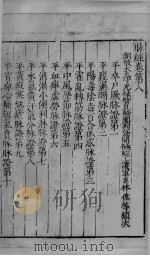 脉經卷第八
朝散大夫守光祿卿直秘閣判登聞檢院上護軍臣林億等類次
平卒尸厥脉證第一
平痓濕暍脉證第二
平陽毒陰毒百合狐惑脉證第三
平霍亂轉筋脉證第四
平中風歷節脉證第五
平血痺虛勞脉證第六
平消渴小便利淋脉證第七
平水氣黃汗氣分脉證第八
平黃疸寒熱瘧脉證第九
平胸痺心痛短氣賁豚脉證第十